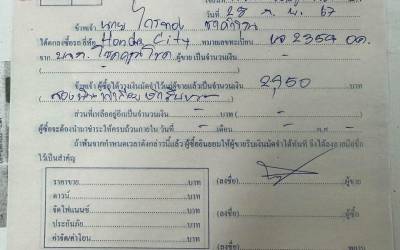 วันที่ 28 ก.พ. 67
ข้าพเจ้า นาย
ได้ตกลงซื้อรถ ยี่ห้อ Honda City หมายเลขทะเบียน 2354
จาก ผู้ขาย เป็นจำนวนเงิน - บาท
ข้าพเจ้า ผู้ซื้อได้วางเงินมัดจำไว้แก่ผู้ขายแล้วเป็นจำนวนเงิน 2950 บาท
ส่วนที่เหลืออยู่อีกเป็นจำนวนเงิน - บาท
ผู้ซื้อจะต้องนำมาชำระให้ครบถ้วนภายใน วันที่ - เดือน - พ.ศ. -
ถ้าพ้นจากกำหนดเวลาดังกล่าวนี้แล้ว ผู้ซื้อยินยอมให้ผู้ขายริบเงินมัดจำได้ทันที จึงได้ลงลายมือชื่อ
ไว้เป็นสำคัญ
ราคาขาย บาท
ดาวน์ บาท
จัดไฟแนนซ์ บาท
ประกันภัย บาท
ค่าจัด/ค่าโอน บาท
(ลงชื่อ) ผู้ขาย
(ลงชื่อ) ผู้ซื้อ
(ลงชื่อ)
(ลงชื่อ)